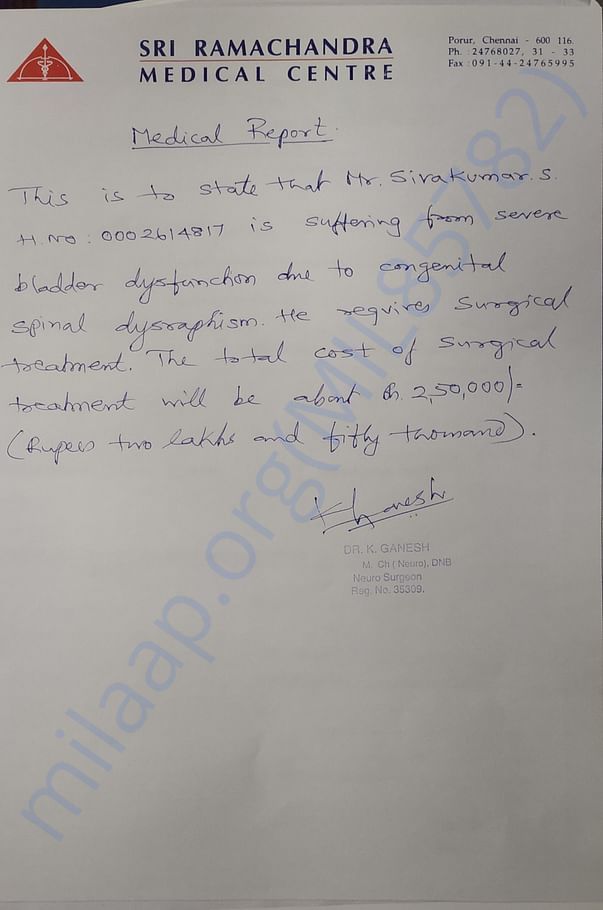 SRI RAMACHANDRA
MEDICAL CENTRE
Porur, Chennai - 600 116.
Ph. : 24768027, 31 - 33
Fax : 091-44-24765995
Medical Report.
This is to state that Mr. Sivakumar. S.
H.No : 0002614817 is suffering from severe
bladder dysfunction due to congenital
spinal dysraphism. He requires surgical
treatment. The total cost of surgical
treatment will be about Rs. 2,50,000/=
(Rupees two lakhs and fifty thousand).
KGanesh
DR. K. GANESH
M. Ch ( Neuro), DNB
Neuro Surgeon
Reg. No. 35309.
milaap.org(MIL85782)